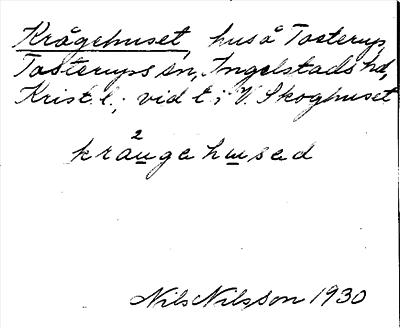 Krågehuset, hus å Tosterup,
Tosterups sn, Ingelstads hd,
Krist. l.; vid t; V. Skoghuset
2
kråugehused
Nils Nilsson 1930